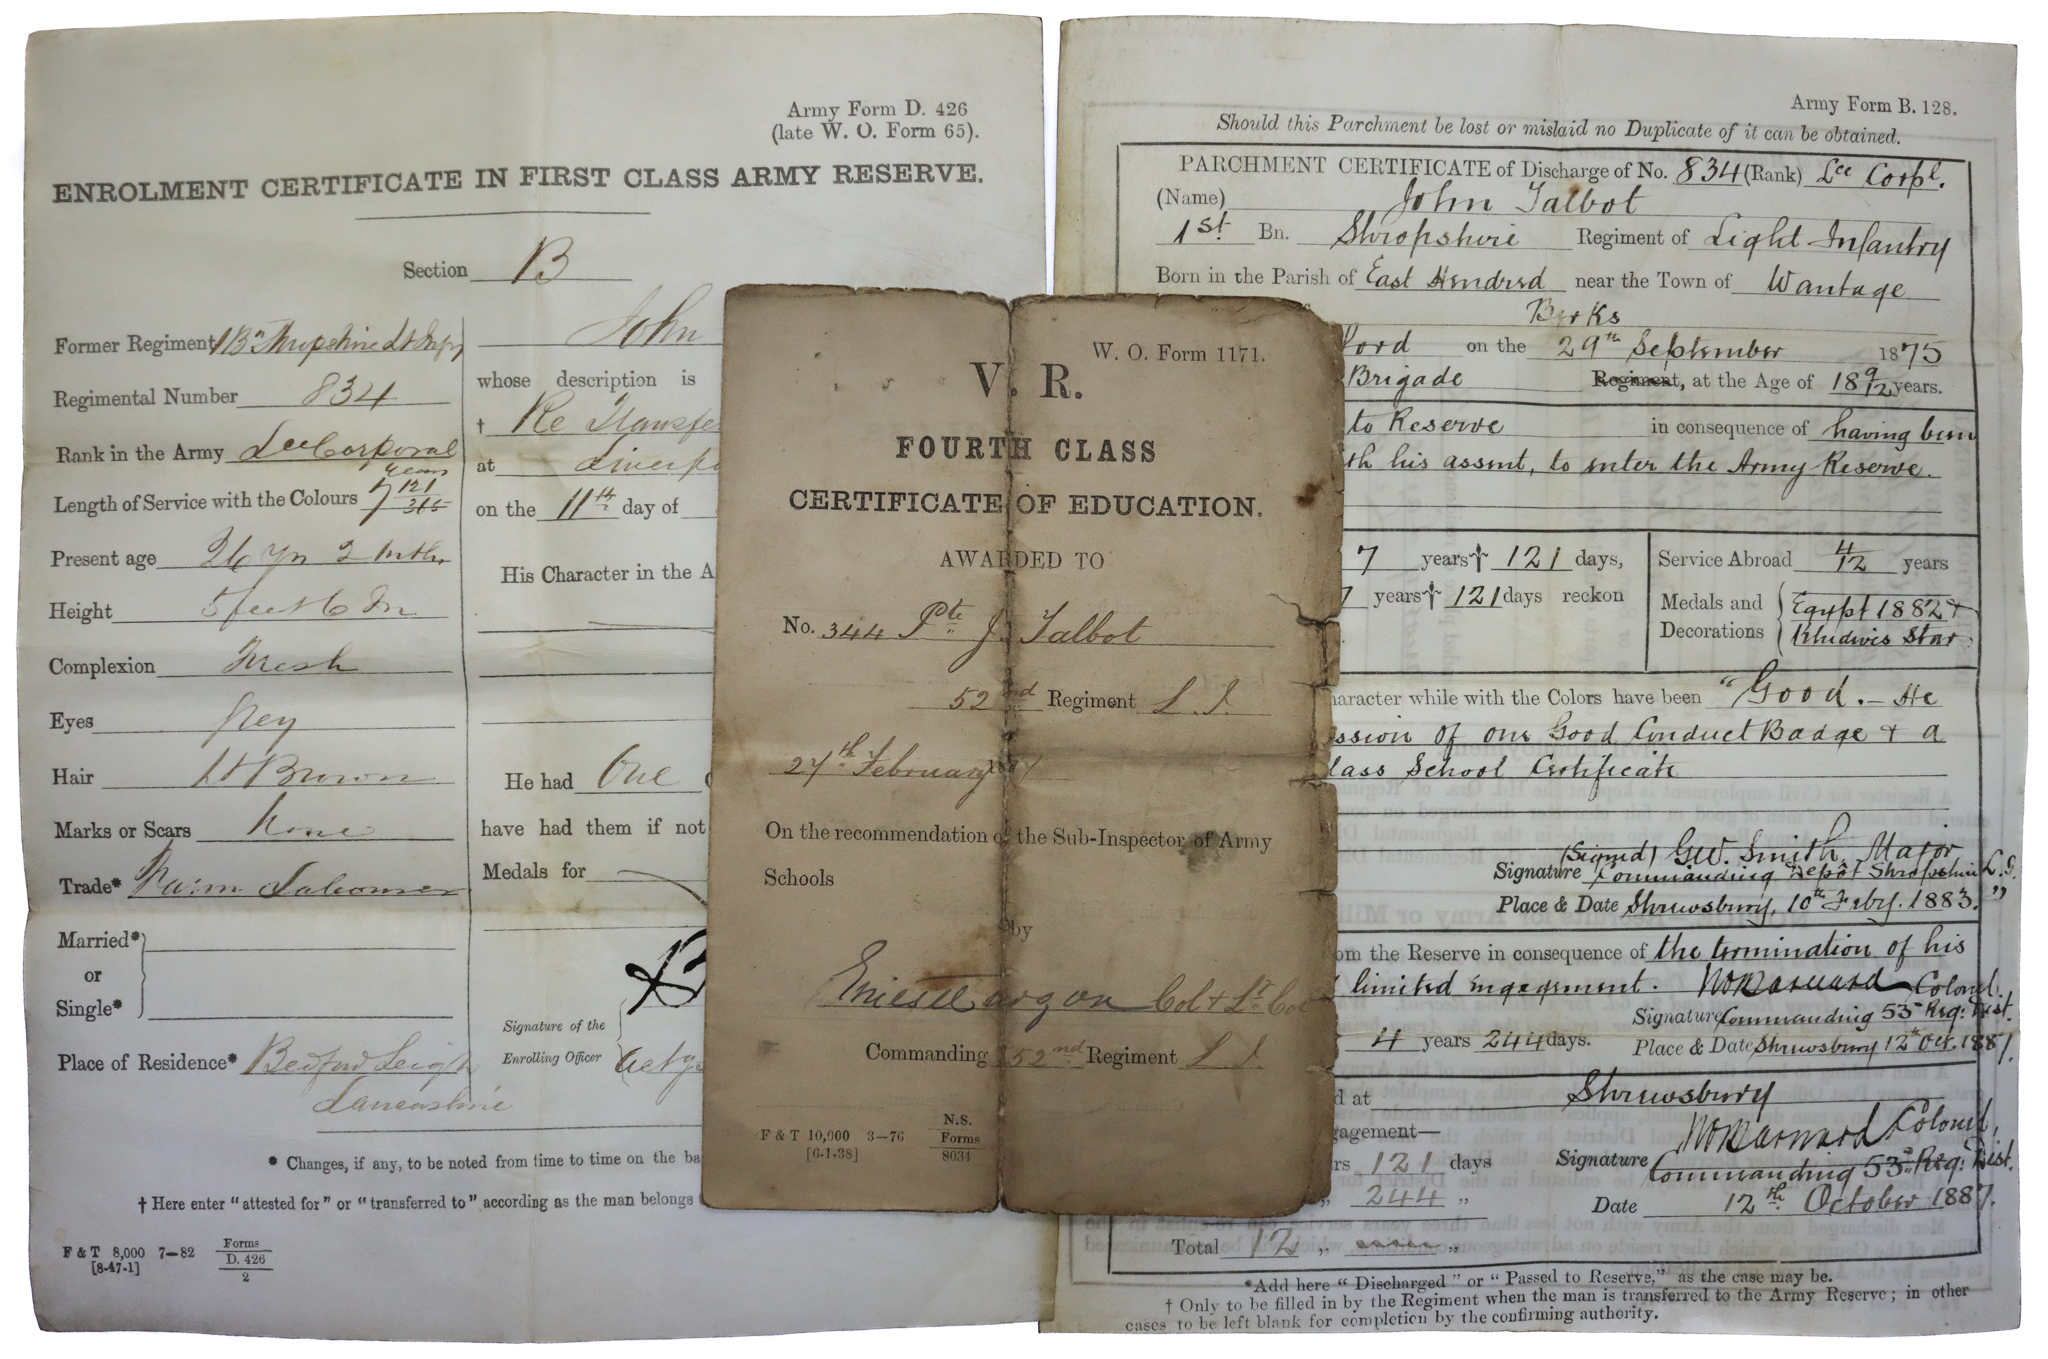 Army Form D. 426
(late W. O. Form 65).
ENROLMENT CERTIFICATE IN FIRST CLASS ARMY RESERVE.
Section B
Former Regiment 1 Bn Shropshire Lt Infy
Regimental Number 834
Rank in the Army Lce Corporal
Length of Service with the Colours 7 years 121/365
Present age 26 yrs 2 mths
Height 5 feet 6 In
Complexion Fresh
Eyes Grey
Hair Lt Brown
Marks or Scars None
Trade* Farm Labourer
Married*
or
Single*
Place of Residence* Bedford Leigh
Lancashire
John
whose description is
† Re Transfe
at Liverpo
on the 11th day of
His Character in the A
He had One
have had them if not
Medals for
Signature of the
Enrolling Officer
* Changes, if any, to be noted from time to time on the ba
† Here enter "attested for" or "transferred to" according as the man belongs
F & T 8,000 7—82
[8-47-1]
Forms
D. 426
2
W. O. Form 1171.
V. R.
FOURTH CLASS
CERTIFICATE OF EDUCATION.
AWARDED TO
No. 344 Pte J. Talbot
52nd Regiment L. I.
27th February 187
On the recommendation of the Sub-Inspector of Army
Schools
by
Col & Lt Col
Commanding 52nd Regiment L. I.
F & T 10,000 3—76
[6-1-38]
N.S.
Forms
8034
Army Form B. 128.
Should this Parchment be lost or mislaid no Duplicate of it can be obtained.
PARCHMENT CERTIFICATE of Discharge of No. 834 (Rank) Lce Corpl.
(Name) John Talbot
1st Bn. Shropshire Regiment of Light Infantry
Born in the Parish of East Hendred near the Town of Wantage
Berks
ford on the 29th September 1875
Brigade Regiment, at the Age of 18 9/12 years.
to Reserve in consequence of having been
th his assent, to enter the Army Reserve.
7 years † 121 days,
7 years † 121 days reckon
Service Abroad 4/12 years
Medals and Decorations Egypt 1882 &
Khedives Star
haracter while with the Colors have been "Good. — He
ssion of one Good Conduct Badge & a
lass School Certificate
(Signed) G.W. Smith, Major
Signature Commanding Depot Shropshire L. I.
Place & Date Shrewsbury, 10th Feby. 1883. "
om the Reserve in consequence of the termination of his
limited engagement. W Barnard Colonel
Signature Commanding 53rd Reg: Dist.
4 years 244 days. Place & Date Shrewsbury 12th Oct. 1887.
d at Shrewsbury
gagement—
rs 121 days
" 244 "
Total 12 " "
W Barnard Colonel,
Signature Commanding 53rd Reg: Dist.
Date 12th October 1887.
*Add here "Discharged" or "Passed to Reserve," as the case may be.
† Only to be filled in by the Regiment when the man is transferred to the Army Reserve; in other
cases to be left blank for completion by the confirming authority.